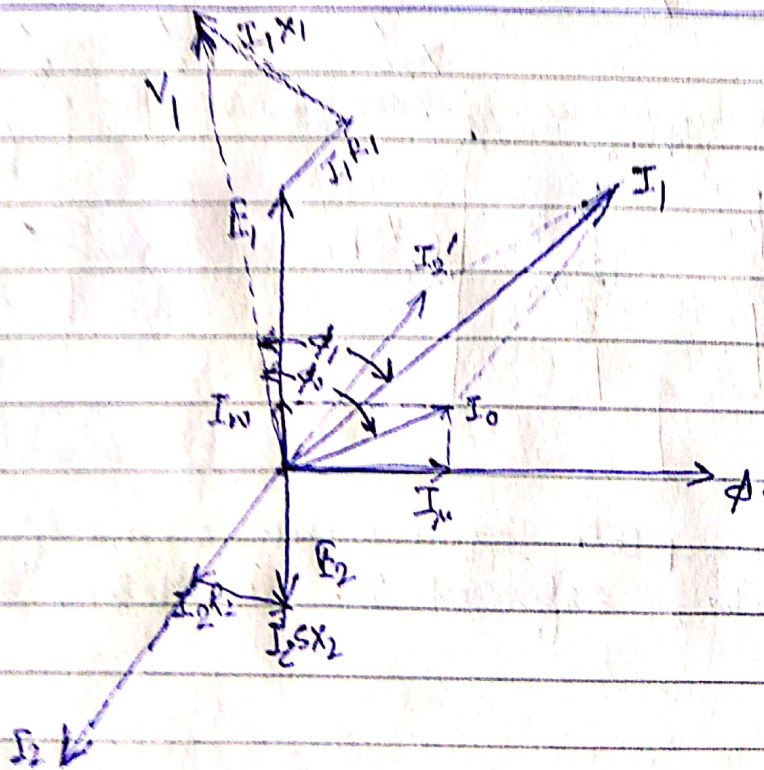 I₁X₁
V₁
I₁R₁
I₁
E₁
I₂'
ϕ₁
ϕ₀
I_w
I₀
I_μ
ϕ
E₂
I₂R₂
I₂SX₂
I₂